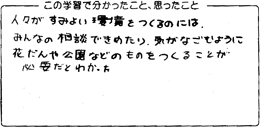 この学習で分かったこと、思ったこと
人々がすみよい環境をつくるのには、
みんなの相談できめたり、気がなごむように
花だんや公園などのものをつくることが
必要だとわかった